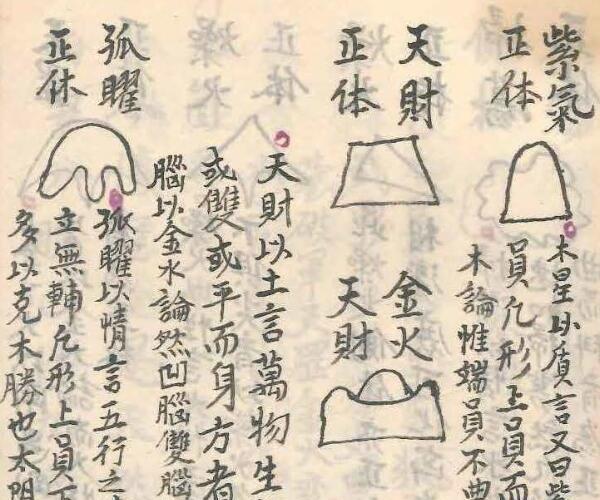 紫氣
正体
木星以質言又曰紫
員凢形上員而
木論惟端員不
天財
正体
金火
天財
天財以土言萬物生
或雙或平而身方者
腦以金水論然凹腦雙腦
孤曜
正体
孤曜以情言五行之
立無輔凢形上員下
多以克木勝也太明